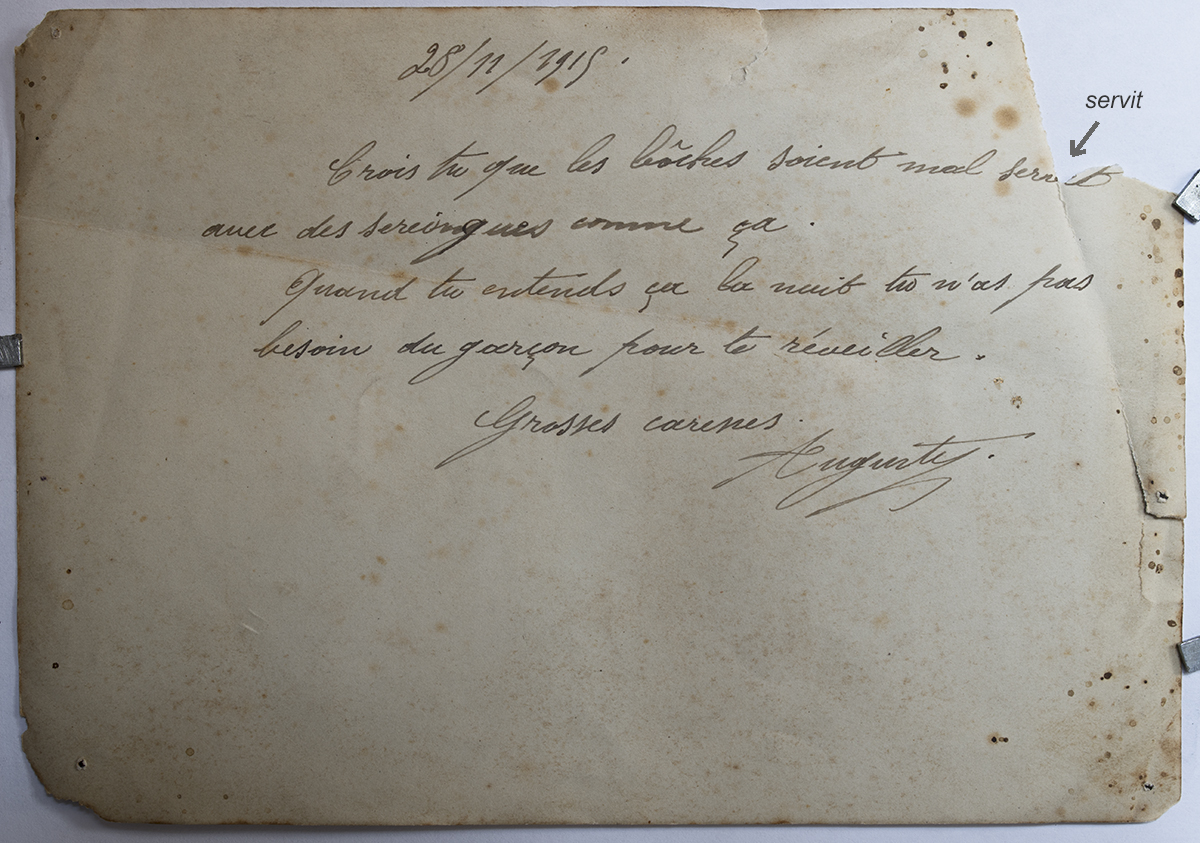 28/11/1915.
servit
Crois tu que les bôches soient mal servit
avec des sereingues comme ça.
Quand tu entends ça la nuit tu n'as pas
besoin du garçon pour te réveiller.
Grosses caresses.
Auguste.